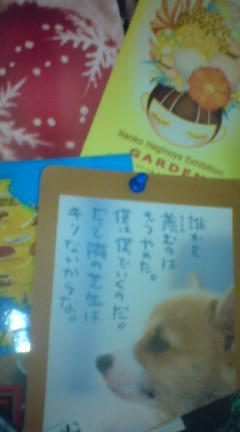 Nanko Haginoya Exhibition
GARDEN
誰かを
羨むのは
もうやめた。
僕は僕でいくのだ。
だって隣の芝生は
キリないからな。